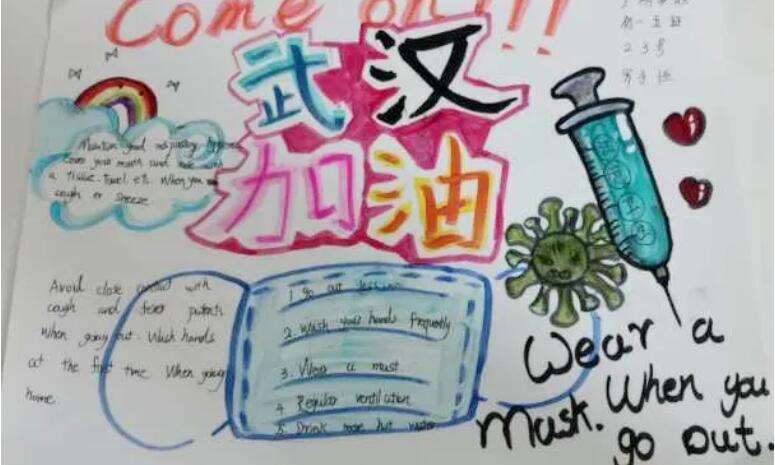 Come on!!!
武汉
加油
初一五班
23号
Maintain good respiratory hygiene
Cover your mouth and nose with
a tissue. towel. etc. When you
cough or sneeze.
Avoid close contact with
cough and fever patients
When going out. Wash hands
at the first time When going
home.
1. go out less
2. Wash your hands frequently
3. Wear a must
4 Regular ventilation
5. Drink more hot water
Wear a
Mask. When you
go out.